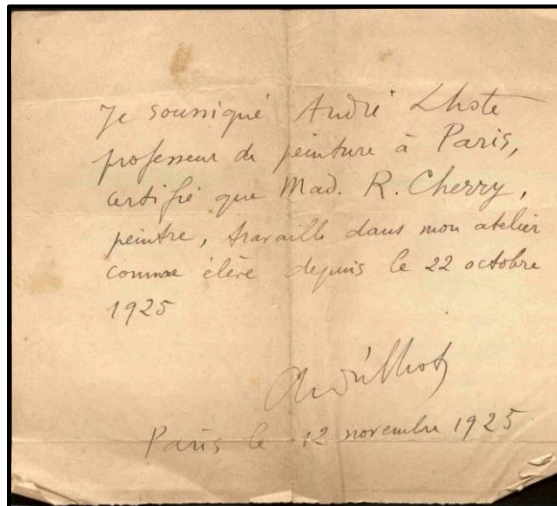 Je soussigné André Lhote
professeur de peinture à Paris,
certifie que Mad. R. Cherry,
peintre, travaille dans mon atelier
comme élève depuis le 22 octobre
1925
André Lhote
Paris le 12 novembre 1925